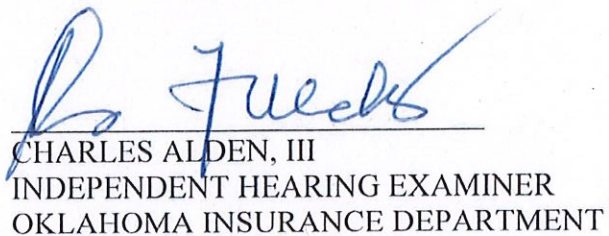 CHARLES ALDEN, III
INDEPENDENT HEARING EXAMINER
OKLAHOMA INSURANCE DEPARTMENT